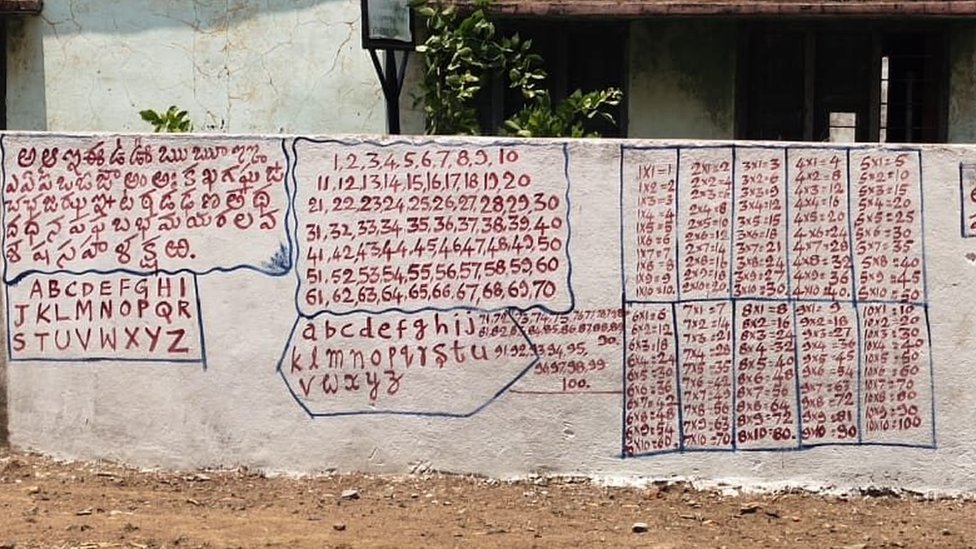 అ ఆ ఇ ఈ ఉ ఊ ఋ ౠ ఌ ౡ
ఎ ఏ ఐ ఒ ఓ ఔ అం అః క ఖ గ ఘ ఙ
చ ఛ జ ఝ ఞ ట ఠ డ ఢ ణ త థ
ద ధ న ప ఫ బ భ మ య ర ల వ
శ ష స హ ళ క్ష ఱ.
ABCDEFGHI
JKLMNOPQR
STUVWXYZ
1,2,3,4,5,6,7,8,9,10
11,12,13,14,15,16,17,18,19,20
21,22,23,24,25,26,27,28,29,30
31,32,33,34,35,36,37,38,39,40
41,42,43,44,45,46,47,48,49,50
51,52,53,54,55,56,57,58,59,60
61,62,63,64,65,66,67,68,69,70
71,72,73,74,75,76,77,78,79,80
81,82,83,84,85,86,87,88,89,
90.
91,92,93,94,95,
96,97,98,99
100.
abcdefghij
klmnopqrstu
vwxyz
1x1=1
1x2=2
1x3=3
1x4=4
1x5=5
1x6=6
1x7=7
1x8=8
1x9=9
1x10=10.
2x1=2
2x2=4
2x3=6
2x4=8
2x5=10
2x6=12
2x7=14
2x8=16
2x9=18
2x10=20
3x1=3
3x2=6
3x3=9
3x4=12
3x5=15
3x6=18
3x7=21
3x8=24
3x9=27
3x10=30
4x1=4
4x2=8
4x3=12
4x4=16
4x5=20
4x6=24
4x7=28
4x8=32
4x9=36
4x10=40
5x1=5
5x2=10
5x3=15
5x4=20
5x5=25
5x6=30
5x7=35
5x8=40
5x9=45
5x10=50
6x1=6
6x2=12
6x3=18
6x4=24
6x5=30
6x6=36
6x7=42
6x8=48
6x9=54
6x10=60.
7x1=7
7x2=14
7x3=21
7x4=28
7x5=35
7x6=42
7x7=49
7x8=56
7x9=63
7x10=70.
8x1=8
8x2=16
8x3=24
8x4=32
8x5=40
8x6=48
8x7=56
8x8=64
8x9=72
8x10=80.
9x1=9
9x2=18
9x3=27
9x4=36
9x5=45
9x6=54
9x7=63
9x8=72
9x9=81
9x10=90
10x1=10
10x2=20
10x3=30
10x4=40
10x5=50
10x6=60
10x7=70
10x8=80
10x9=90
10x10=100